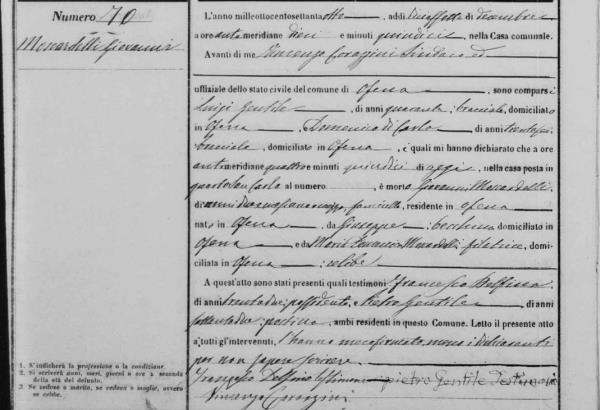 Numero 70
Moscardelli Giovanni
L'anno milleottocentosettantotto, addì diciassette di dicembre
a ore antimeridiane dieci e minuti quindici, nella Casa comunale.
Avanti di me Vincenzo Corazzini Sindaco ed
uffiziale dello stato civile del comune di Ofena, sono comparsi
Luigi Gentile, di anni quaranta, bracciale, domiciliato
in Ofena, Domenico di Carlo, di anni
bracciale, domiciliato in Ofena, i quali mi hanno dichiarato che a ore
antimeridiane quattro e minuti quindici di oggi, nella casa posta in
San Carlo al numero, è morto Giovanni Moscardelli
di anni, residente in Ofena
nato in Ofena, da Giuseppe, domiciliato in
Ofena e da Maria Moscardelli filatrice, domi-
ciliata in Ofena; celibe
A quest'atto sono stati presenti quali testimoni Francesco
di anni trentadue, possidente, e Pietro Gentile, di anni
settantadue, postino, ambi residenti in questo Comune. Letto il presente atto
a tutti gl'intervenuti, l'hanno mecofirmato, meno i dichiaranti
per non sapere scrivere
Francesco testimone pietro Gentile Testimonio
Vincenzo Corazzini
1. S'indicherà la professione o la condizione.
2. Si scriverà anni, mesi, giorni o ore a seconda
della età del defunto.
3. Se vedovo o marito, se vedova o moglie, ovvero
se celibe.